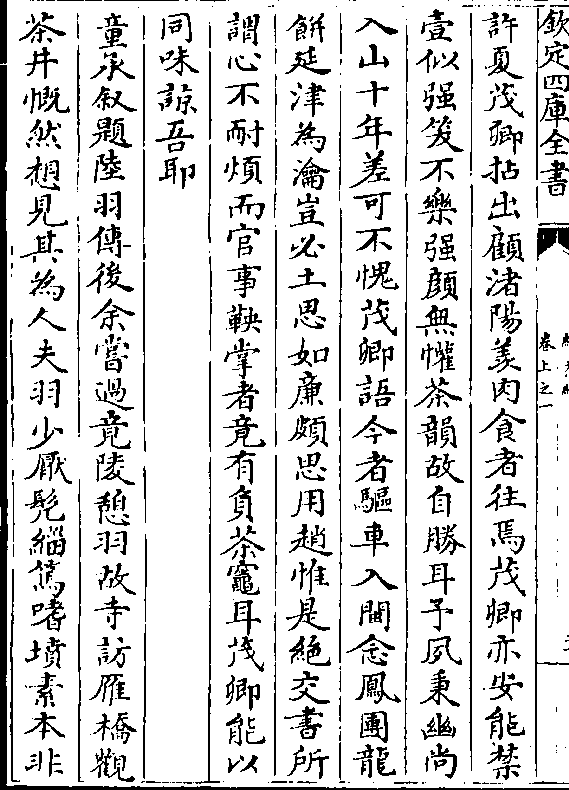 欽定四庫全書
卷上之一
許夏茂卿拈出顧渚陽羨肉食者往焉茂卿亦安能禁
壹似强笑不樂强顔無懽茶韻故自勝耳予夙秉幽尚
入山十年差可不愧茂卿語今者驅車入閩念鳳團龍
餅延津為瀹豈必土思如廉頗思用趙惟是絕交書所
謂心不耐煩而官事鞅掌者竟有負茶竈耳茂卿能以
同味諒吾耶
童承叙題陸羽傳後余嘗過竟陵憩羽故寺訪雁橋觀
茶井慨然想見其為人夫羽少厭髡緇篤嗜墳素本非